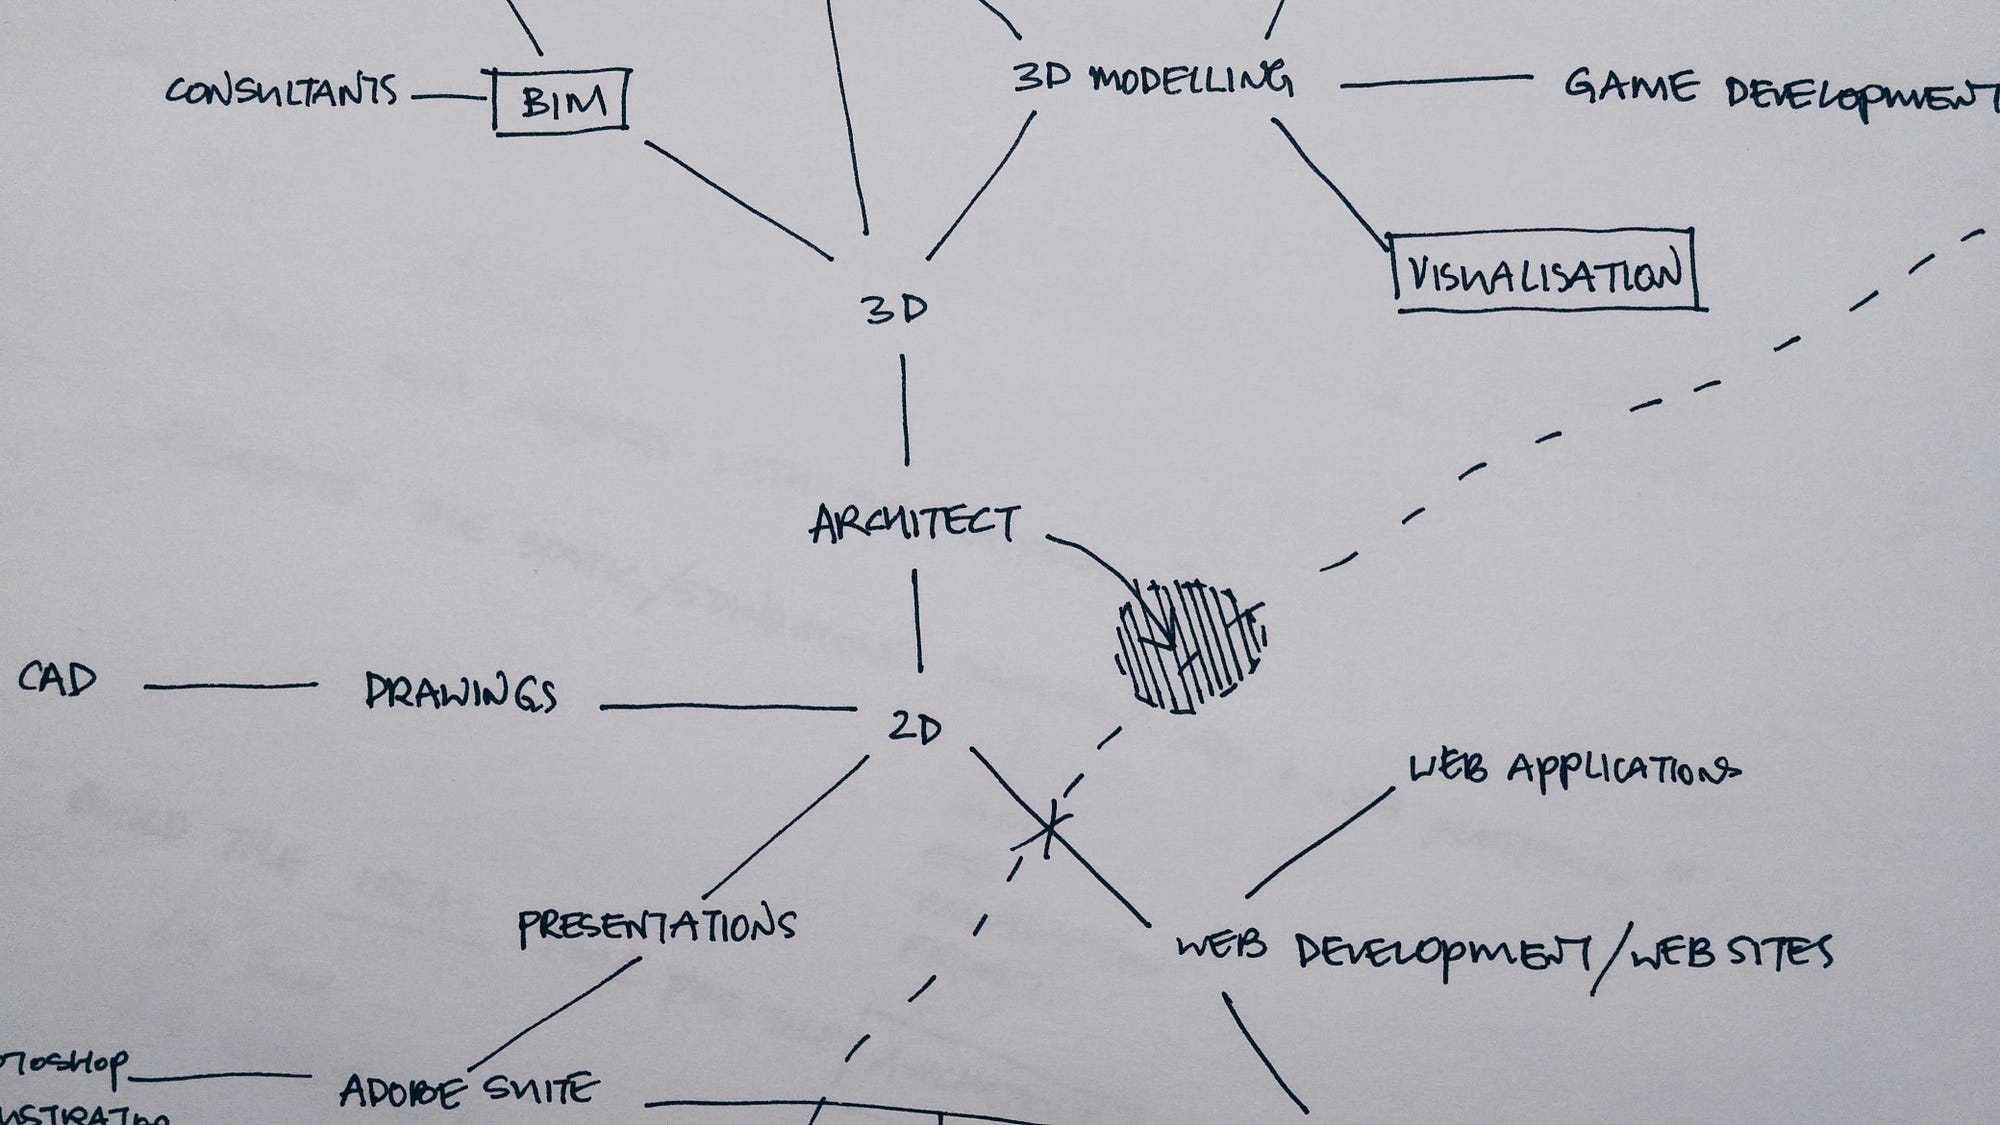 3D MODELLING
GAME DEVELOPMENT
CONSULTANTS
BIM
VISUALISATION
3D
ARCHITECT
CAD
DRAWINGS
2D
WEB APPLICATIONS
PRESENTATIONS
WEB DEVELOPMENT/WEBSITES
OTOSHOP
ADOBE SUITE
USTRATOR